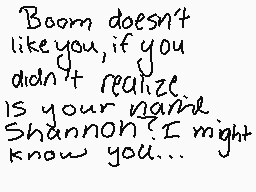 Boom doesn't
like you, if you
didn't realize
Is your name
Shannon? I might
know you...